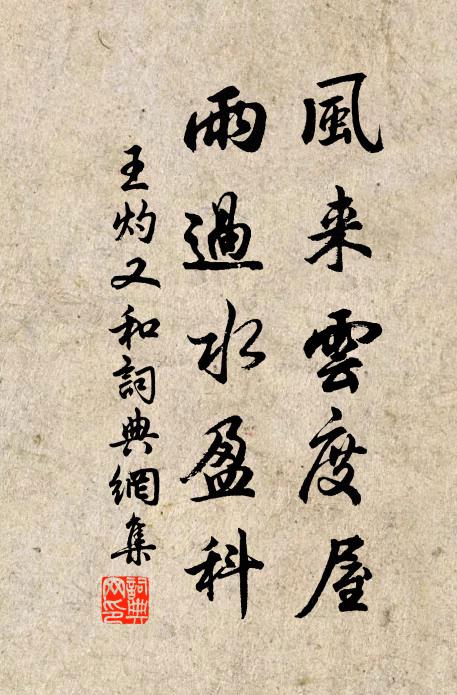 風来雲度屋
雨過水盈科
王灼又和詞典網集
詞典